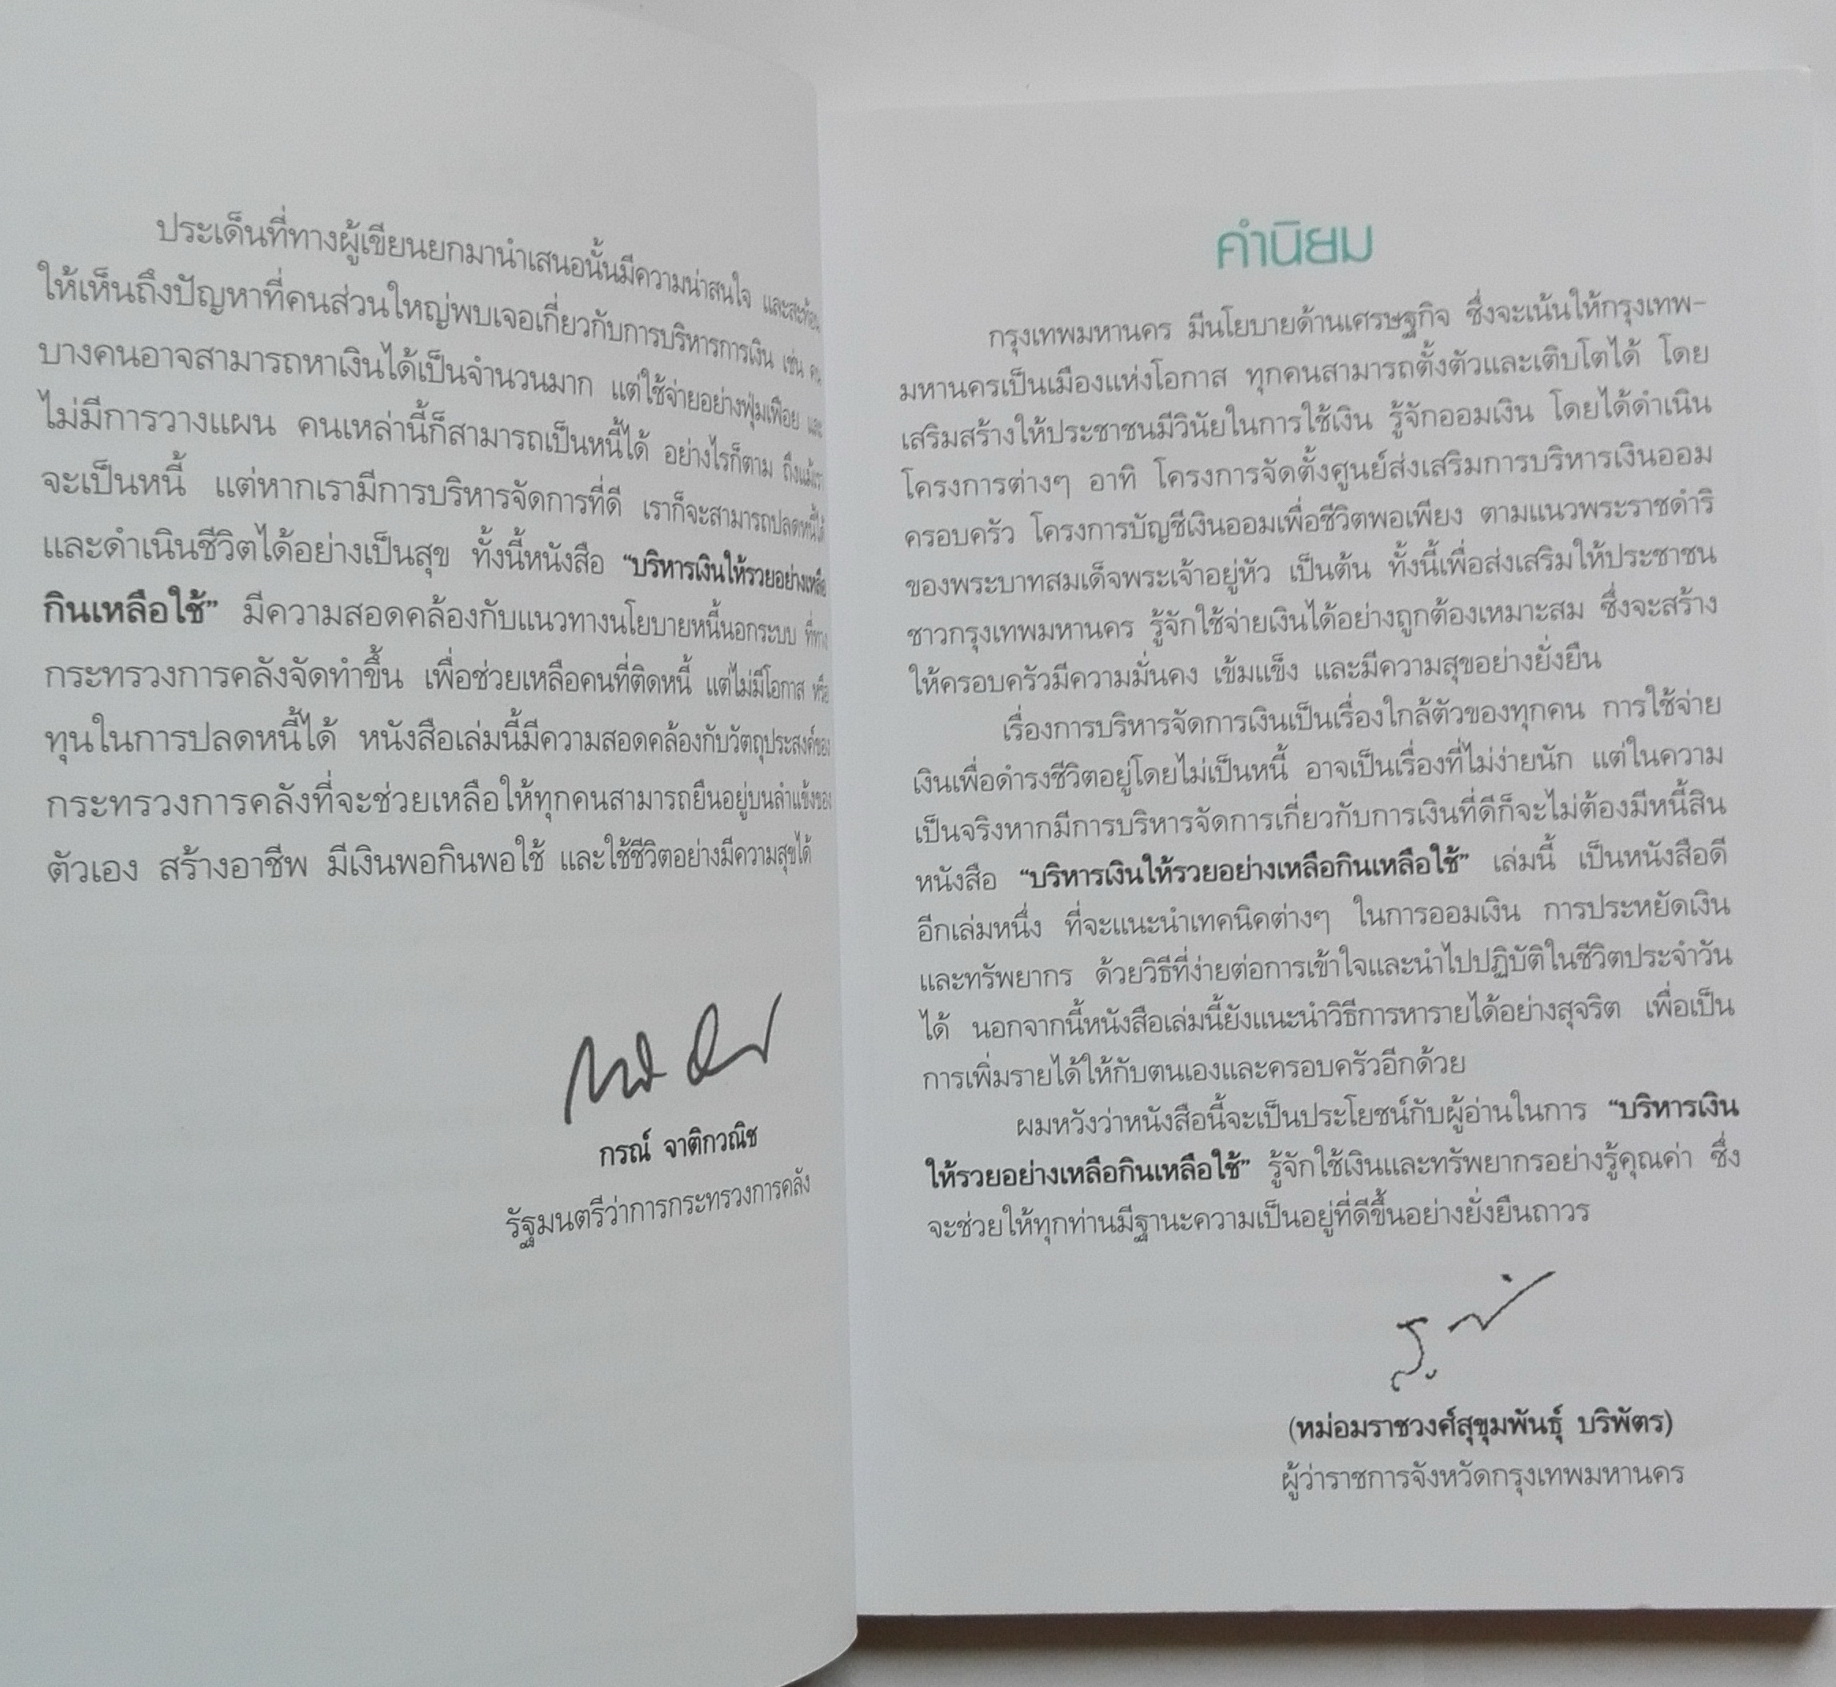 ประเด็นที่ทางผู้เขียนยกมานำเสนอนั้นมีความน่าสนใจ และสะท้อน
ให้เห็นถึงปัญหาที่คนส่วนใหญ่พบเจอเกี่ยวกับการบริหารการเงิน เช่น คน
บางคนอาจสามารถหาเงินได้เป็นจำนวนมาก แต่ใช้จ่ายอย่างฟุ่มเฟือย และ
ไม่มีการวางแผน คนเหล่านี้ก็สามารถเป็นหนี้ได้ อย่างไรก็ตาม ถึงแม้เรา
จะเป็นหนี้ แต่หากเรามีการบริหารจัดการที่ดี เราก็จะสามารถปลดหนี้ได้
และดำเนินชีวิตได้อย่างเป็นสุข ทั้งนี้หนังสือ “บริหารเงินให้รวยอย่างเหลือ
กินเหลือใช้” มีความสอดคล้องกับแนวทางนโยบายหนี้นอกระบบ ที่ทาง
กระทรวงการคลังจัดทำขึ้น เพื่อช่วยเหลือคนที่ติดหนี้ แต่ไม่มีโอกาส หรือ
ทุนในการปลดหนี้ได้ หนังสือเล่มนี้มีความสอดคล้องกับวัตถุประสงค์ของ
กระทรวงการคลังที่จะช่วยเหลือให้ทุกคนสามารถยืนอยู่บนลำแข้งของ
ตัวเอง สร้างอาชีพ มีเงินพอกินพอใช้ และใช้ชีวิตอย่างมีความสุขได้
กรณ์ จาติกวณิช
รัฐมนตรีว่าการกระทรวงการคลัง
คำนิยม
กรุงเทพมหานคร มีนโยบายด้านเศรษฐกิจ ซึ่งจะเน้นให้กรุงเทพ-
มหานครเป็นเมืองแห่งโอกาส ทุกคนสามารถตั้งตัวและเติบโตได้ โดย
เสริมสร้างให้ประชาชนมีวินัยในการใช้เงิน รู้จักออมเงิน โดยได้ดำเนิน
โครงการต่างๆ อาทิ โครงการจัดตั้งศูนย์ส่งเสริมการบริหารเงินออม
ครอบครัว โครงการบัญชีเงินออมเพื่อชีวิตพอเพียง ตามแนวพระราชดำริ
ของพระบาทสมเด็จพระเจ้าอยู่หัว เป็นต้น ทั้งนี้เพื่อส่งเสริมให้ประชาชน
ชาวกรุงเทพมหานคร รู้จักใช้จ่ายเงินได้อย่างถูกต้องเหมาะสม ซึ่งจะสร้าง
ให้ครอบครัวมีความมั่นคง เข้มแข็ง และมีความสุขอย่างยั่งยืน
เรื่องการบริหารจัดการเงินเป็นเรื่องใกล้ตัวของทุกคน การใช้จ่าย
เงินเพื่อดำรงชีวิตอยู่โดยไม่เป็นหนี้ อาจเป็นเรื่องที่ไม่ง่ายนัก แต่ในความ
เป็นจริงหากมีการบริหารจัดการเกี่ยวกับการเงินที่ดีก็จะไม่ต้องมีหนี้สิน
หนังสือ “บริหารเงินให้รวยอย่างเหลือกินเหลือใช้” เล่มนี้ เป็นหนังสือดี
อีกเล่มหนึ่ง ที่จะแนะนำเทคนิคต่างๆ ในการออมเงิน การประหยัดเงิน
และทรัพยากร ด้วยวิธีที่ง่ายต่อการเข้าใจและนำไปปฏิบัติในชีวิตประจำวัน
ได้ นอกจากนี้หนังสือเล่มนี้ยังแนะนำวิธีการหารายได้อย่างสุจริต เพื่อเป็น
การเพิ่มรายได้ให้กับตนเองและครอบครัวอีกด้วย
ผมหวังว่าหนังสือนี้จะเป็นประโยชน์กับผู้อ่านในการ “บริหารเงิน
ให้รวยอย่างเหลือกินเหลือใช้” รู้จักใช้เงินและทรัพยากรอย่างรู้คุณค่า ซึ่ง
จะช่วยให้ทุกท่านมีฐานะความเป็นอยู่ที่ดีขึ้นอย่างยั่งยืนถาวร
(หม่อมราชวงศ์สุขุมพันธุ์ บริพัตร)
ผู้ว่าราชการจังหวัดกรุงเทพมหานคร